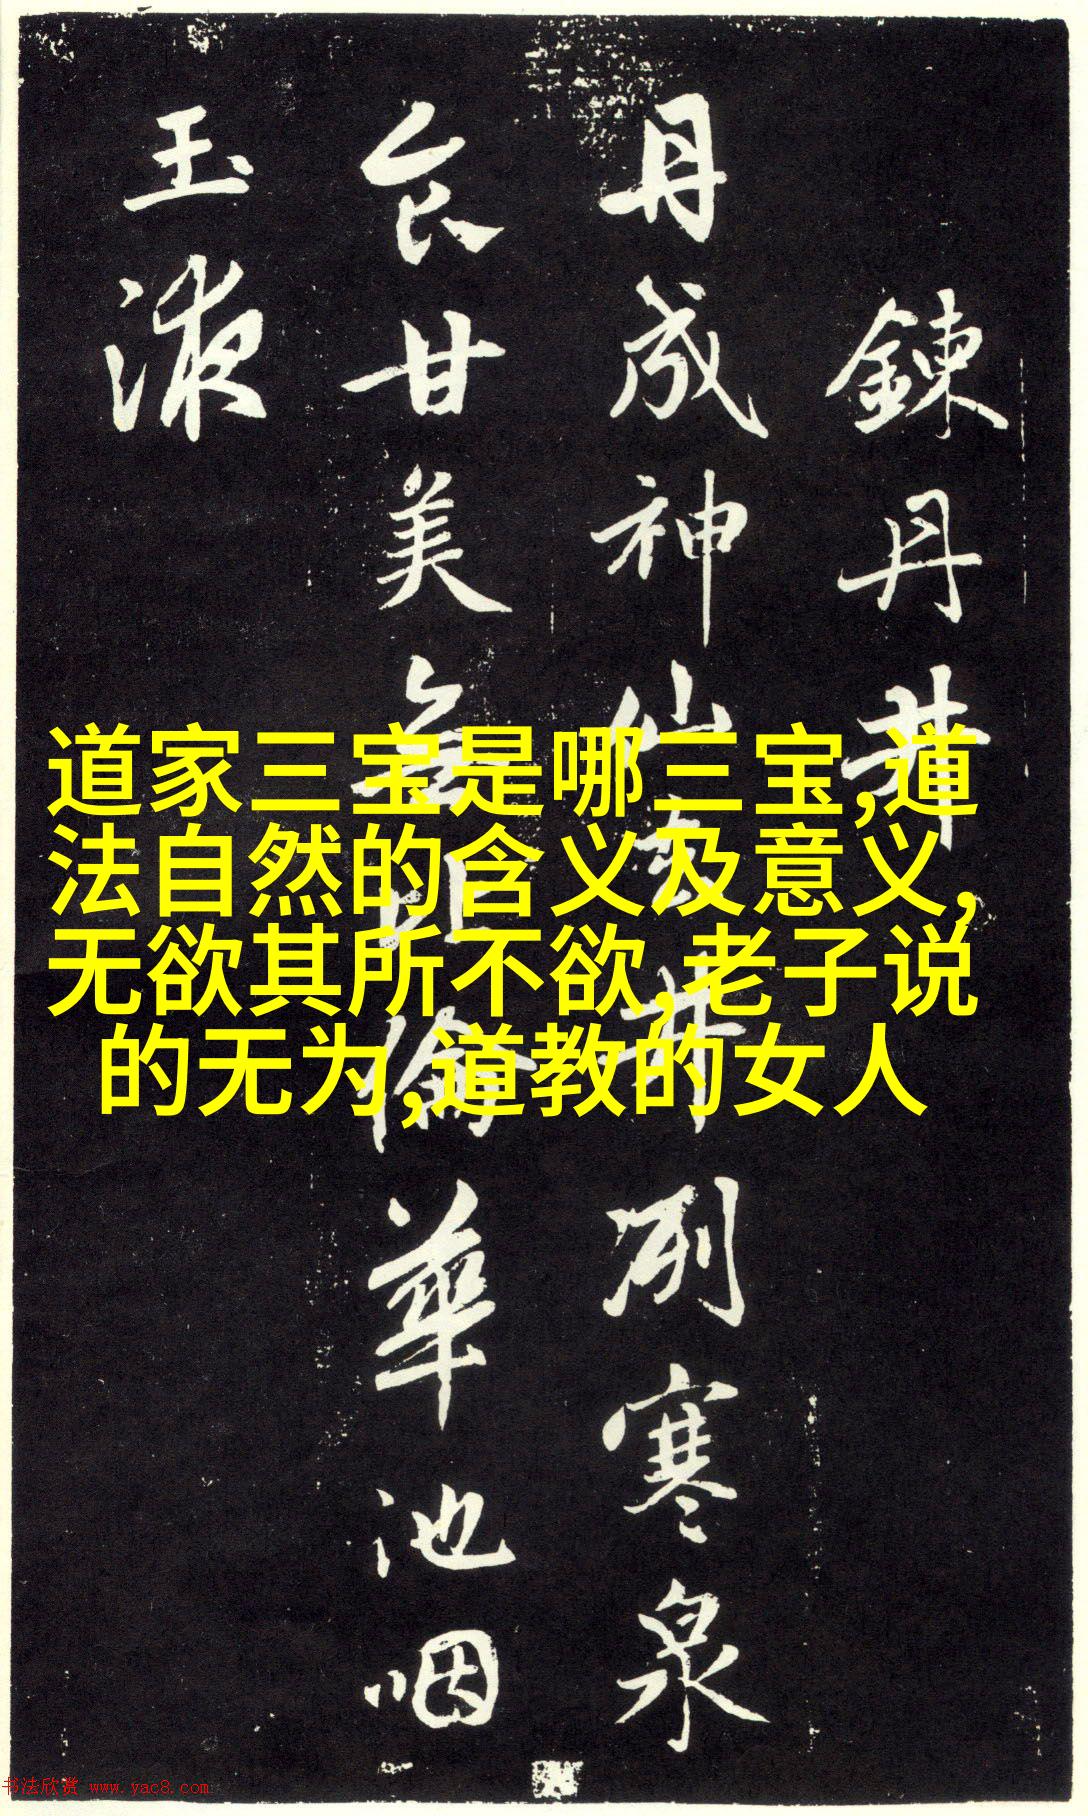 鍊丹井
丹成神仙去井冽寒泉
食甘美無比倫華池咽
玉液
道家三宝是哪三宝,道
法自然的含义及意义,
无欲其所不欲,老子说
的无为,道教的女人
书法欣赏 www.yac8.com